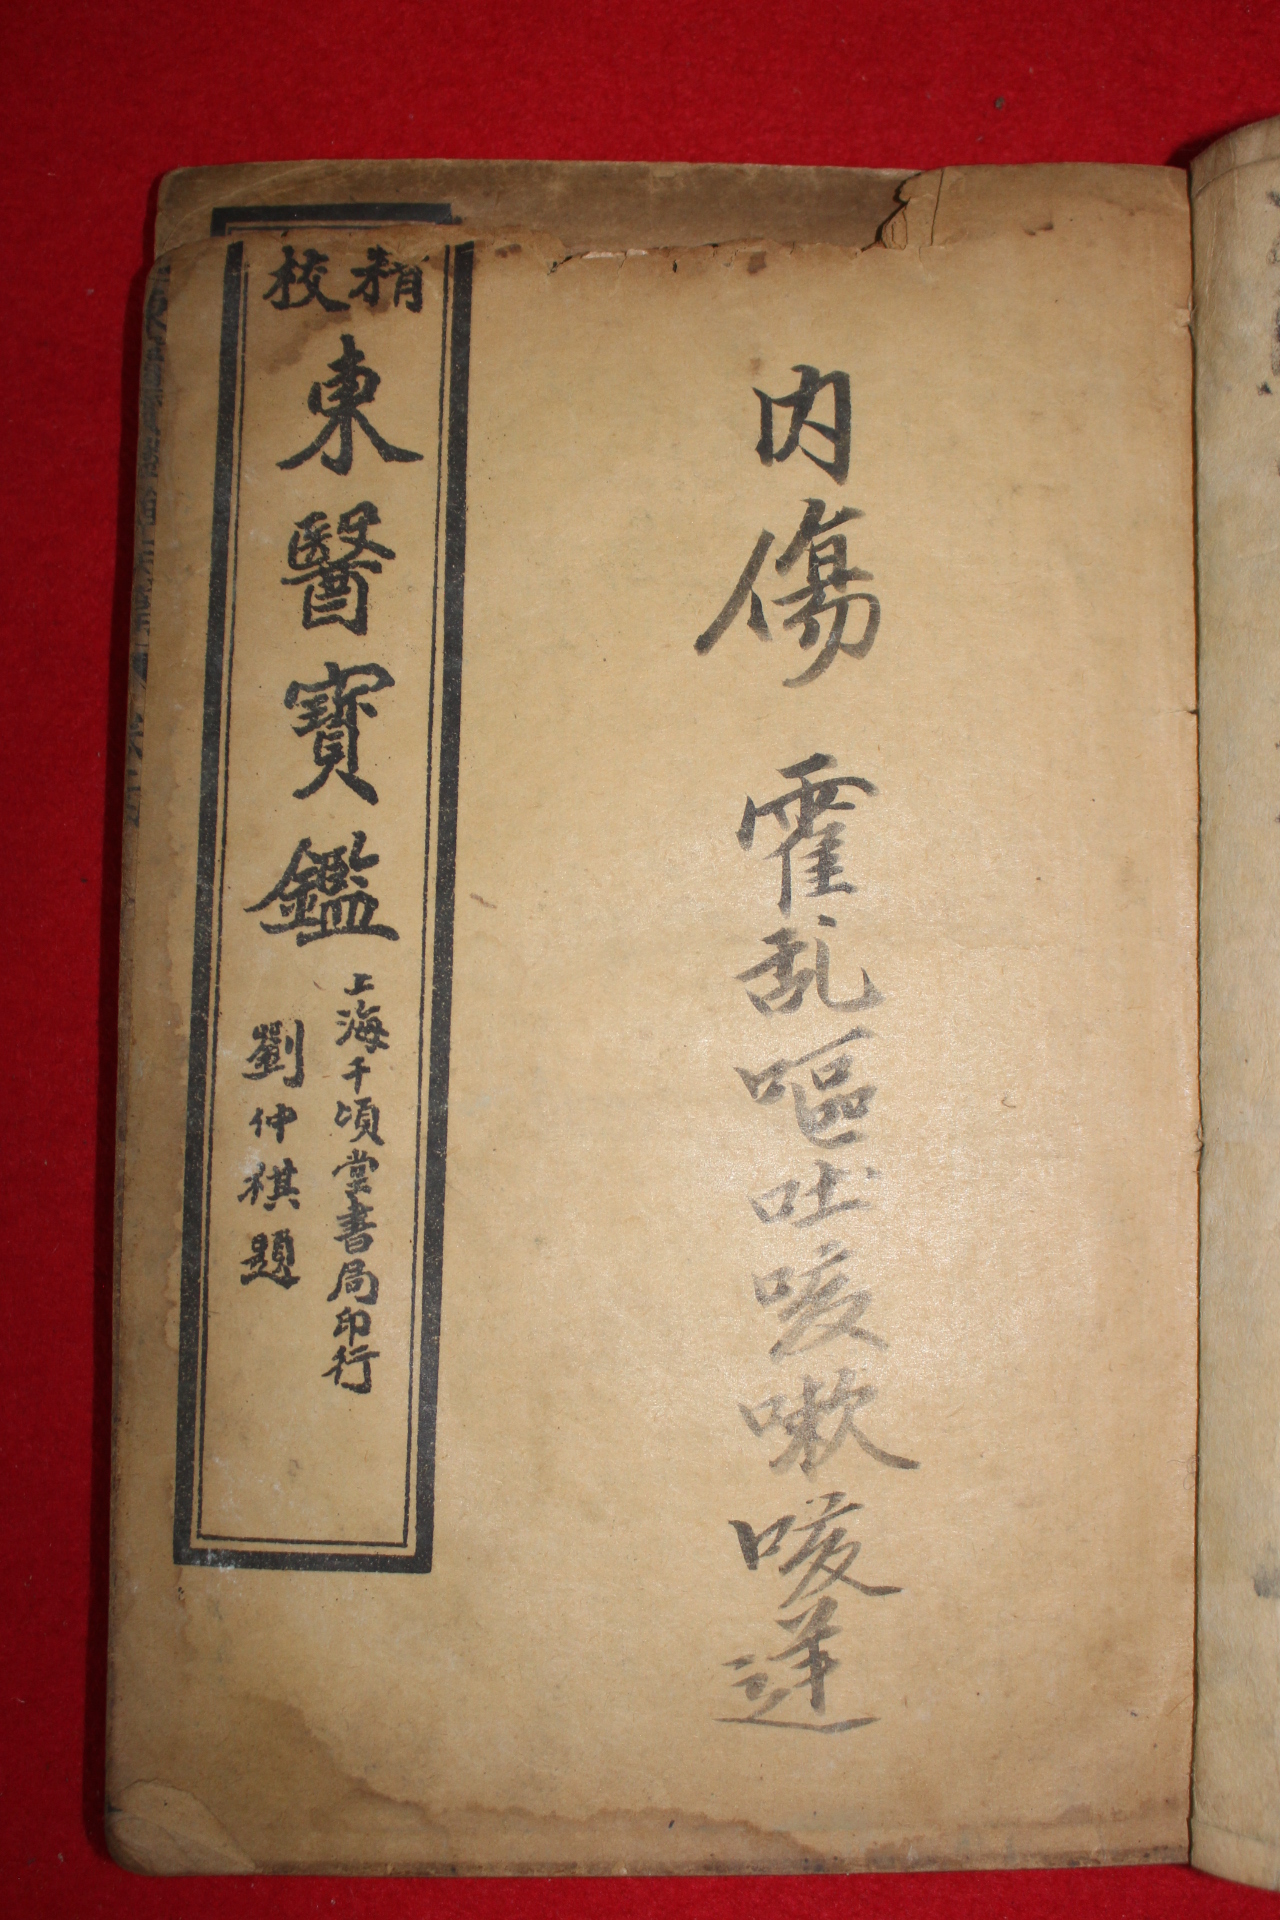 内傷 霍乱嘔吐咳嗽咳逆
精校
東醫寶鑑
上海千頃堂書局印行
劉仲祺題